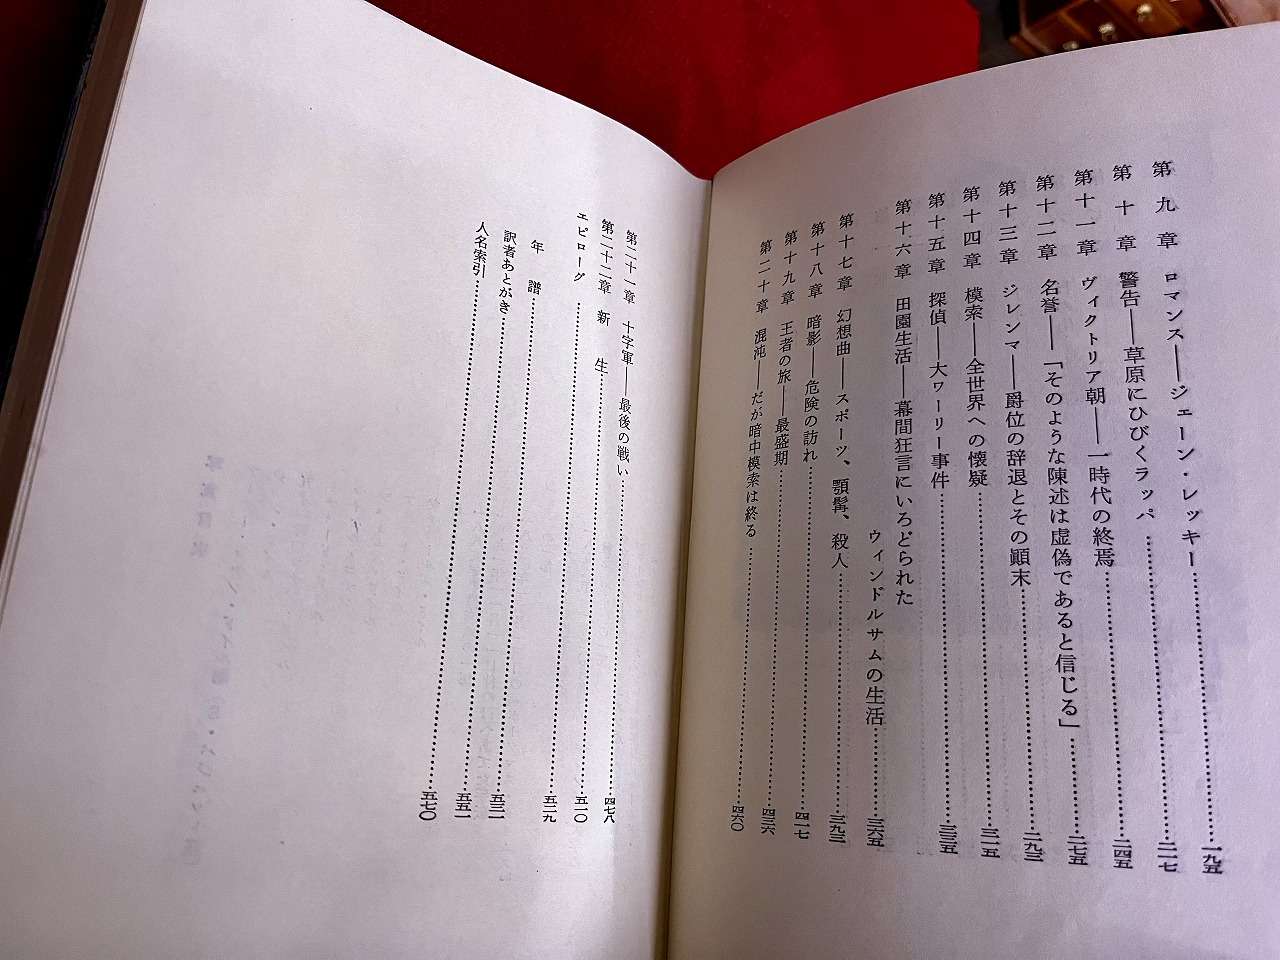 第九章 ロマンス――ジェーン・レッキー……一九五
第十章 警告――草原にひびくラッパ……二一七
第十一章 ヴィクトリア朝――一時代の終焉……二四五
第十二章 名誉――「そのような陳述は虚偽であると信じる」……二七五
第十三章 ジレンマ――爵位の辞退とその顚末……二九三
第十四章 模索――全世界への懐疑……三一五
第十五章 探偵――大ワーリー事件……三三五
第十六章 田園生活――幕間狂言にいろどられた
ウィンドルサムの生活……三六五
第十七章 幻想曲――スポーツ、顎髯、殺人……三九三
第十八章 暗影――危険の訪れ……四一七
第十九章 王者の旅――最盛期……四三六
第二十章 混沌――だが暗中模索は終る……四六〇
第二十一章 十字軍――最後の戦い……四七八
第二十二章 新生……五一〇
エピローグ……五二九
年譜……五三一
訳者あとがき……五五一
人名索引……五七〇